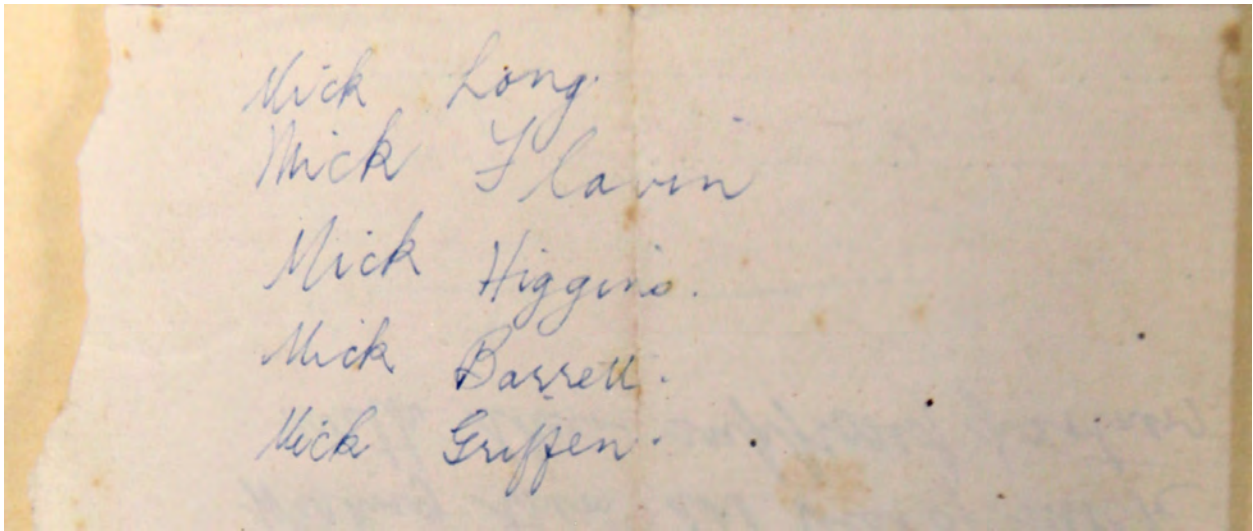 Mick Long.
Mick Flavin
Mick Higgins.
Mick Barrett.
Mick Griffen.